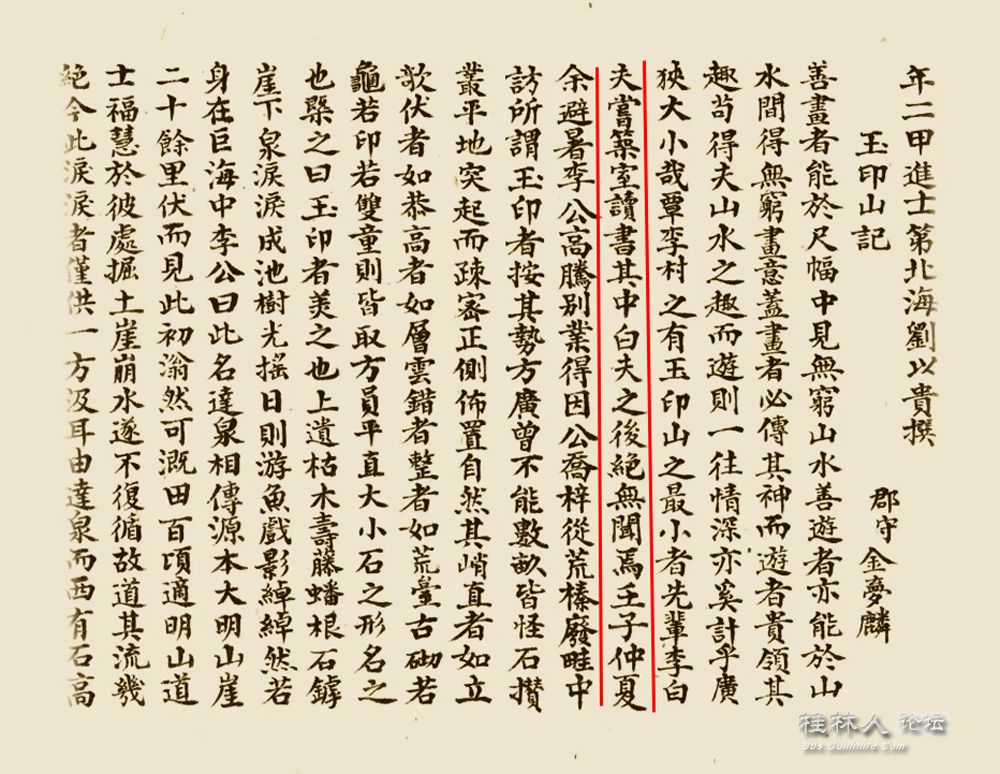 年二甲進士第北海劉以貴撰
玉印山記 郡守金夢麟
善畫者能於尺幅中見無窮山水善遊者亦能於山
水間得無窮畫意蓋畫者必傳其神而遊者貴領其
趣苟得夫山水之趣而遊則一往情深亦奚計乎廣
狹大小哉覃李村之有玉印山之最小者先輩李白
夫嘗築室讀書其中白夫之後絕無聞焉壬子仲夏
余避暑李公高騰別業得因公喬梓從荒榛廢畦中
訪所謂玉印者按其勢方廣曾不能數畝皆怪石攢
叢平地突起而疎密正側佈置自然其峭直者如立
欹伏者如恭高者如層雲錯者整者如荒臺古砌若
龜若印若雙童則皆取方員平直大小石之形名之
也槩之曰玉印者美之也上遺枯木壽藤蟠根石罅
崖下泉淚淚成池樹光搖日則游魚戲影綽綽然若
身在巨海中李公曰此名達泉相傳源本大明山崖
二十餘里伏而見此初滃然可溉田百頃適明山道
士福慧於彼處掘土崖崩水遂不復循故道其流幾
絕今此淚淚者僅供一方汲耳由達泉而西有石高
桂林人论坛
bbs.Guilinlife.com